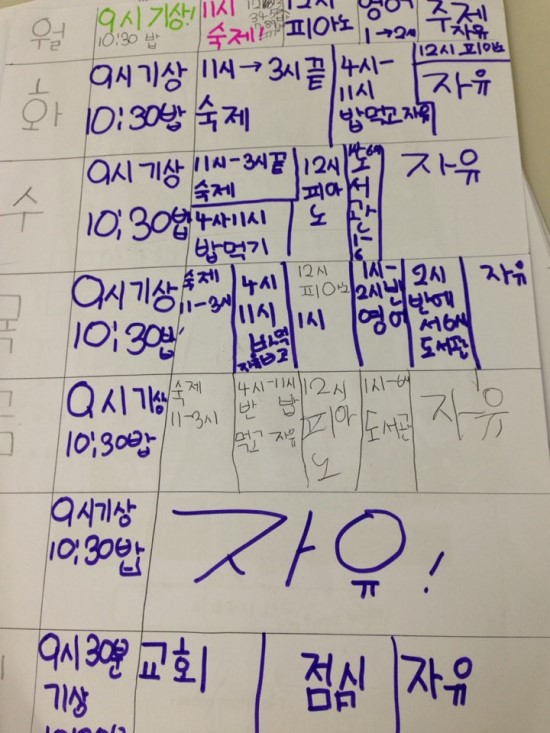 월
9시기상!
10:30 밥
11시
숙제!
12시
피아노
영어
1→2시
주제
자유
화
9시기상
10:30밥
11시→3시끝
숙제
4시-
11시
밥먹고자유
12시 피아노
자유
수
9시기상
10:30밥
11시-3시끝
숙제
4시11시
밥먹기
12시
피아
노
도
서
관
자유
목
9시기상
10:30밥
숙제
11-3시
4시
11시
12시
피아노
1시
1시-
2시반
영어
2시
반에
서6시
도서관
자유
금
9시기상
10:30밥
숙제
11-3시
4시-11시
반 밥
먹고 자유
12시
피아
노
도서관
자유
9시기상
10:30밥
자유!
9시30분
기상
교회
점심
자유